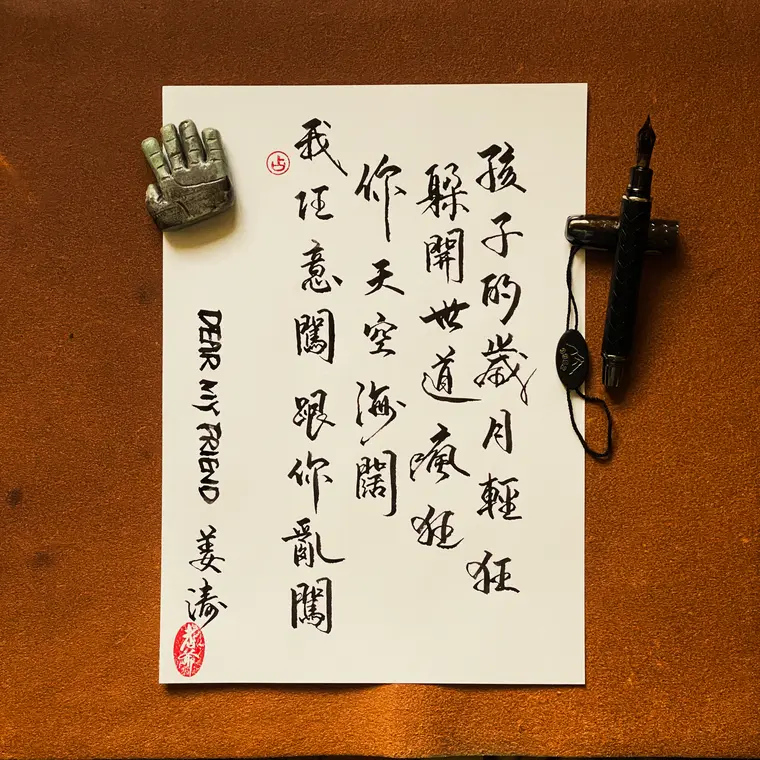 孩子的歲月輕狂
躲開世道瘋狂
你天空海闊
我任意闖跟你亂闖
DEAR MY FRIEND 姜濤